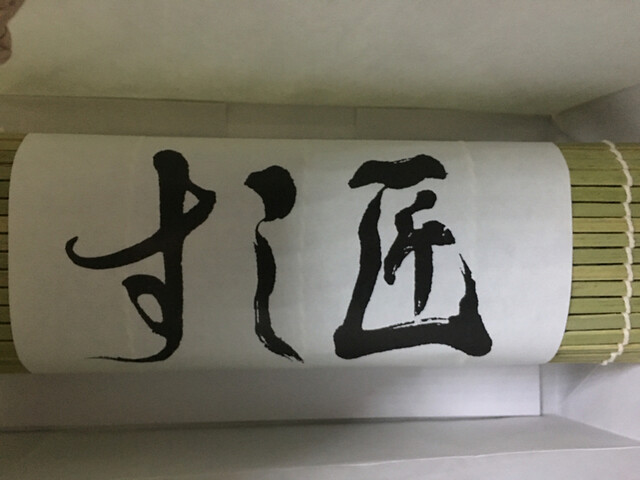 すし匠